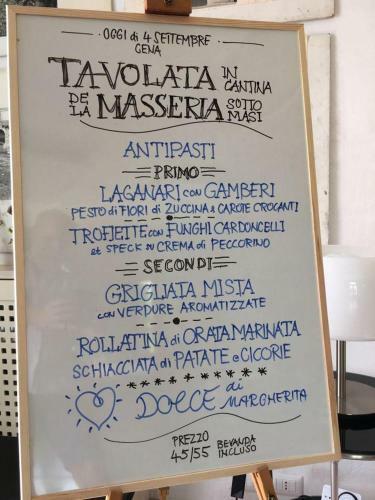 OGGI di 4 SETTEMBRE
CENA
TAVOLATA IN CANTINA
DE LA MASSERIA SOTTO MASI
ANTIPASTI
PRIMO
LAGANARI con GAMBERI
PESTO di FIORI di ZUCCINA e CAROTE CROCANTI
TROFIETTE con FUNGHI CARDONCELLI
et SPECK su CREMA di PECCORINO
SECONDI
GRIGLIATA MISTA
con VERDURE AROMATIZZATE
ROLLATINA di ORATA MARINATA
SCHIACCIATA di PATATE e CICORIE
DOLCE di MARGHERITA
PREZZO
45/55 BEVANDA INCLUSO